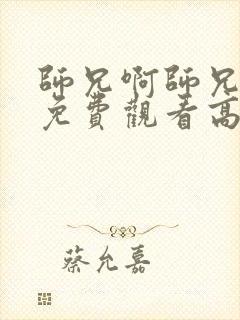 師兄啊師兄
免費觀看高
蔡允嘉